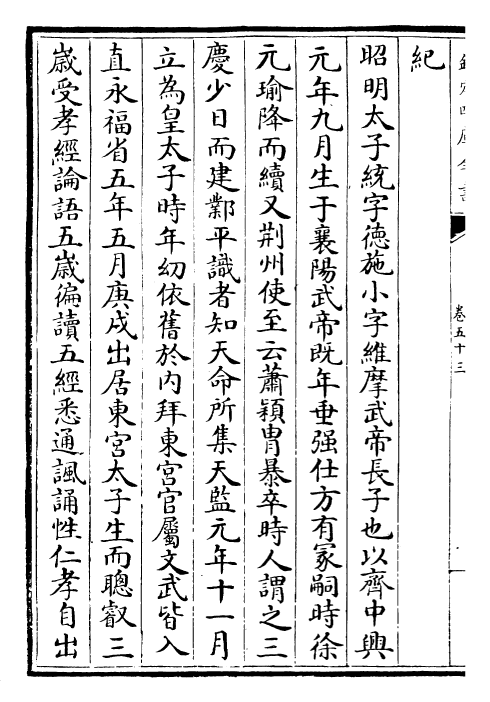 欽定四庫全書
卷五十三
紀
昭明太子統字德施小字維摩武帝長子也以齊中興
元年九月生于襄陽武帝既年垂强仕方有冢嗣時徐
元瑜降而續又荆州使至云蕭穎胄暴卒時人謂之三
慶少日而建鄴平識者知天命所集天監元年十一月
立為皇太子時年幼依舊於内拜東宫官屬文武皆入
直永福省五年五月庚戌出居東宫太子生而聰叡三
歲受孝經論語五歲徧讀五經悉通諷誦性仁孝自出